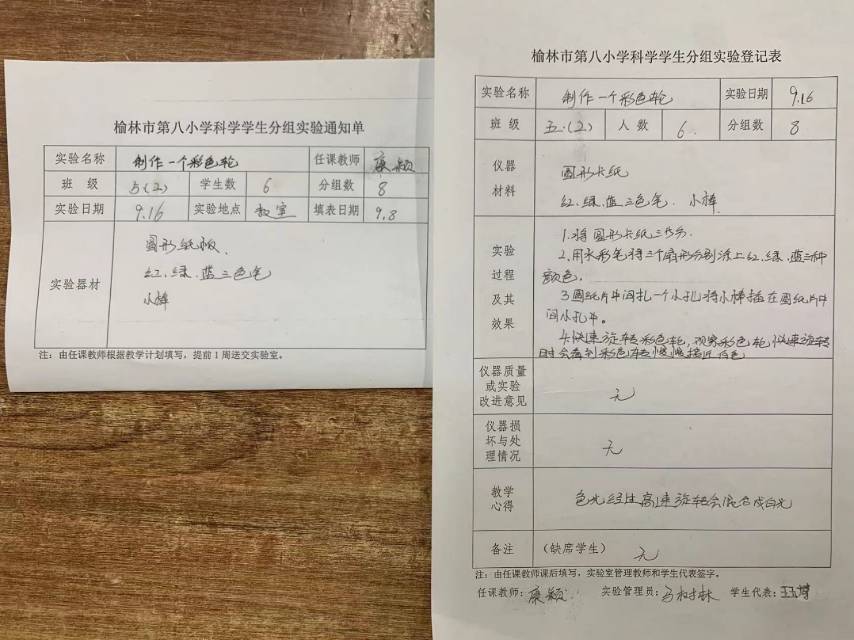 榆林市第八小学科学学生分组实验通知单
实验名称 制作一个彩色轮 任课教师 康颖
班 级 5(2) 学生数 6 分组数 8
实验日期 9.16 实验地点 教室 填表日期 9.8
实验器材
圆形纸板、
红、绿、蓝三色笔
小棒
注：由任课教师根据教学计划填写，提前1周送交实验室。
榆林市第八小学科学学生分组实验登记表
实验名称 制作一个彩色轮 实验日期 9.16
班 级 五.(2) 人 数 6. 分组数 8
仪器
材料
圆形卡纸
红.绿.蓝三色笔. 小棒
实验
过程
及其
效果
1.将圆形卡纸三等分.
2.用水彩笔将三个扇形分别涂上红.绿.蓝三种
颜色.
3.圆纸片中间扎一个小孔,将小棒插在圆纸片中
间小孔中。
4.快速旋转彩色轮,观察彩色轮,快速旋转
时会看到彩色轮慢慢接近白色
仪器质量
或实验
改进意见
无
仪器损
坏与处
理情况
无
教学
心得
色光经过高速旋转会混合成白光
备注 (缺席学生) 无
注：由任课教师课后填写，实验室管理教师和学生代表签字。
任课教师: 康颖. 实验管理员: 马树林 学生代表: